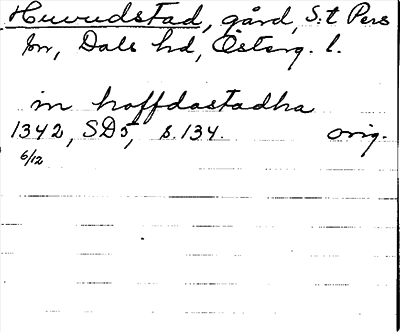 Huvudstad, gård, S:t Pers
sn, Dals hd, Österg. l.
in hoffdastadha
1342, SD5, s. 134. orig.
6/12